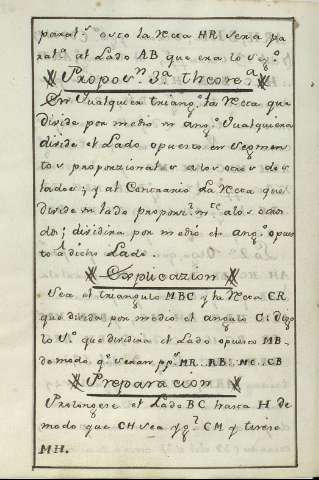 paralˢ; osco la Recta HR sera pa
ralª al Lado AB que era lo segº
Proposⁿ 3ª Theorª
En Qualquier triangº la Recta que
divide por medio un angº Qualquiera
divide el Lado opuesto en segmen
tos proporzionales a los otros dos
lados; y al Contrario La Recta que
divide un lado proporzˡ mᵗᵉ a los otros
dos; dividira por medio el angº opues
to á dicho Lado.
Explicazion
Sea el triangulo MBC y la Recta CR
que divida por medio el angulo C: digo
lo 1º que dividira el Lado opuesto MB
de modo qᵉ seran ppˢ MR . RB : MC . CB
Preparacion
Prolonguese el Lado BC hasta H de
modo que CH sea ygˡ CM y tirese
MH.